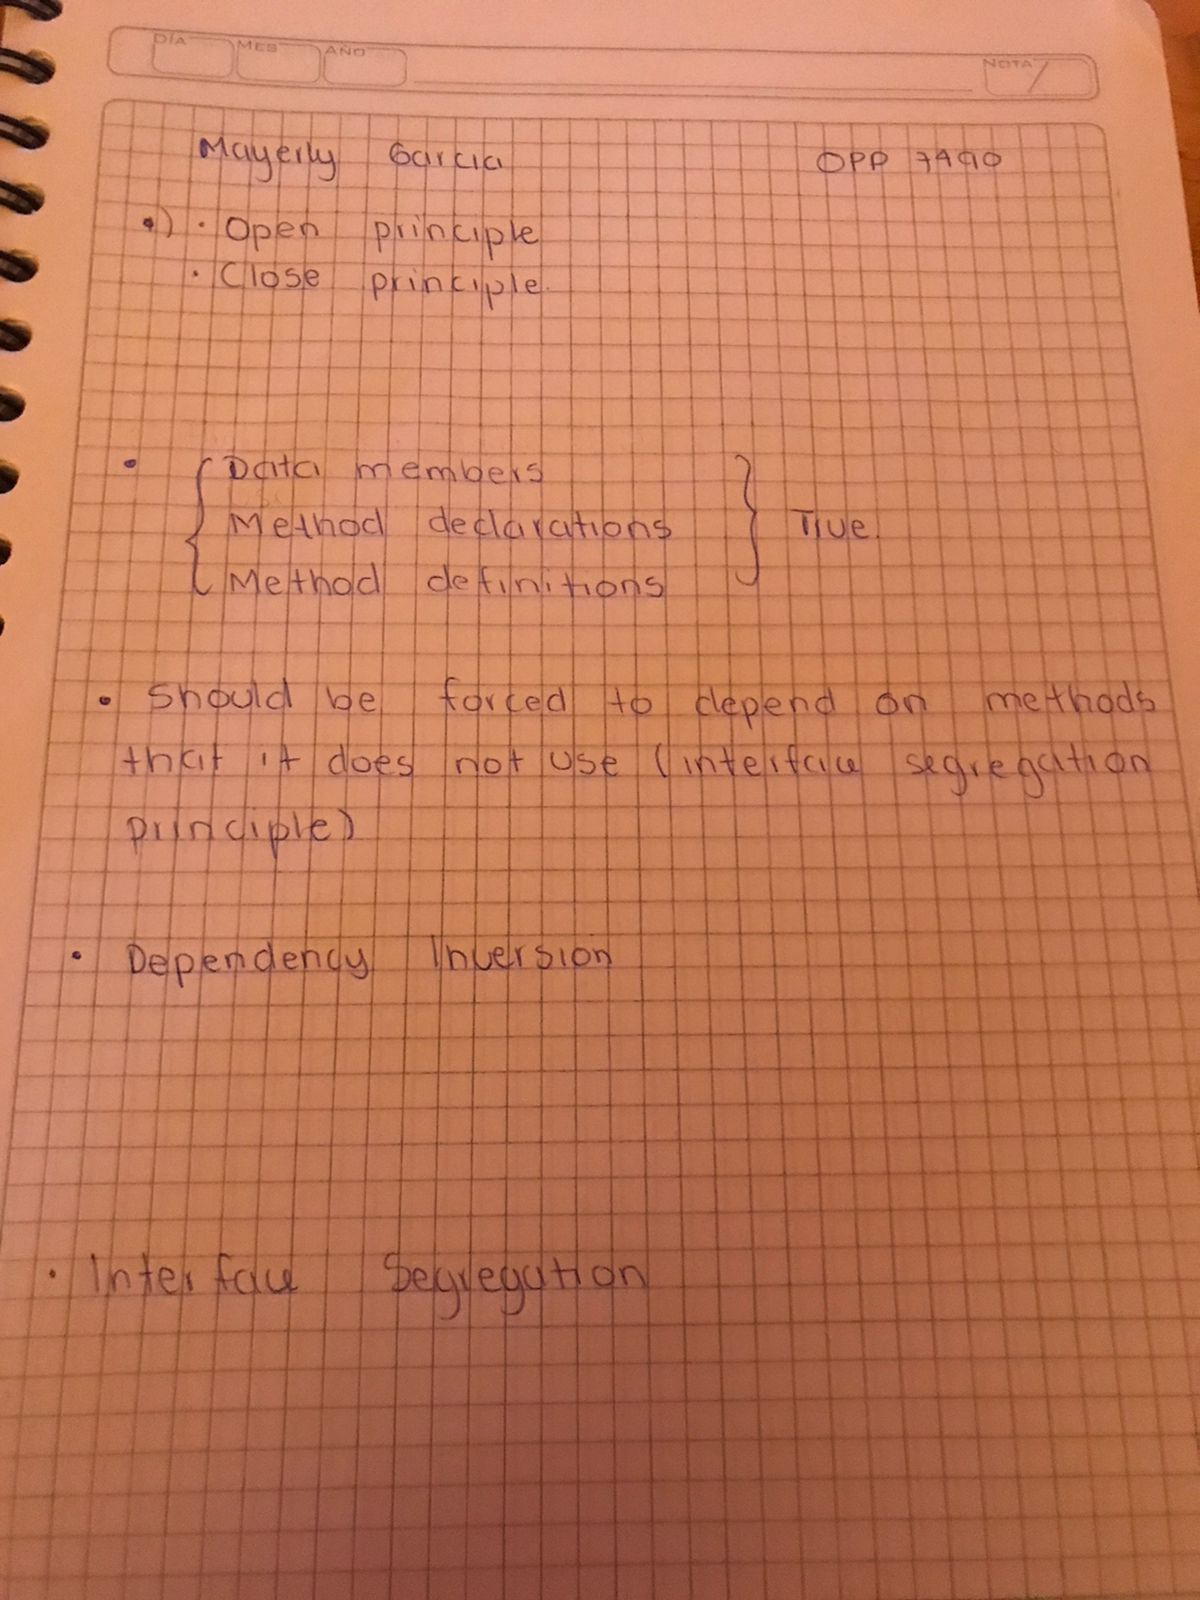 DÍA MES AÑO NOTA
Mayerly Garcia OPP 7490
•) · Open principle
· Close principle.
• { Data members
Method declarations } True.
Method definitions
• Should be forced to depend on methods
that it does not use (interface segregation
principle)
• Dependency Inversion
• Interface Segregation